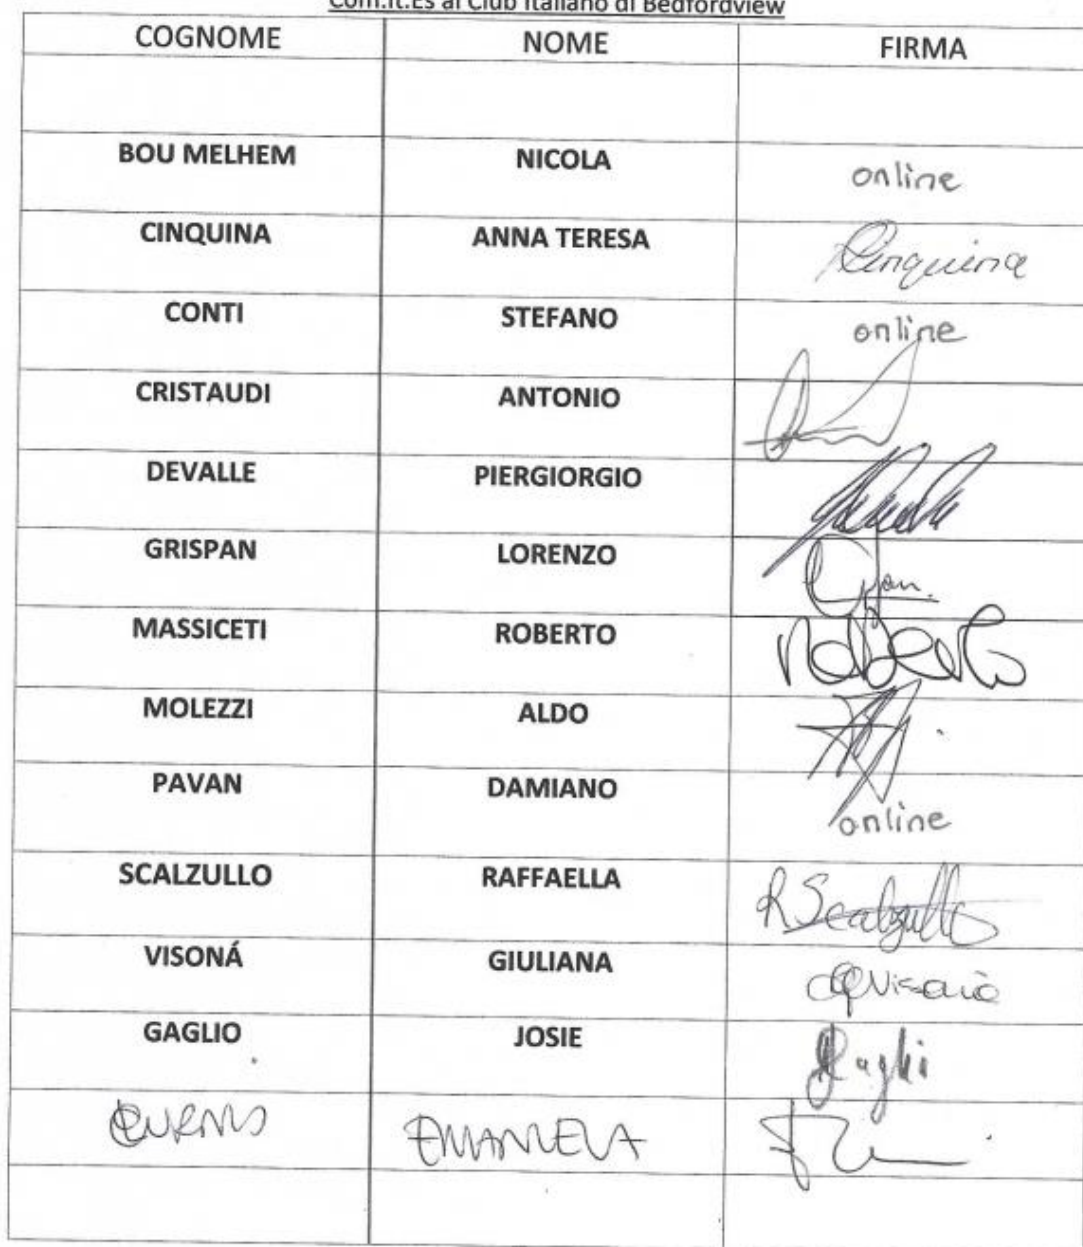 Com.It.Es al Club Italiano di Bedfordview
COGNOME NOME FIRMA
BOU MELHEM NICOLA online
CINQUINA ANNA TERESA Cinquina
CONTI STEFANO online
CRISTAUDI ANTONIO
DEVALLE PIERGIORGIO
GRISPAN LORENZO
MASSICETI ROBERTO
MOLEZZI ALDO
PAVAN DAMIANO online
SCALZULLO RAFFAELLA R Scalzullo
VISONÁ GIULIANA
GAGLIO JOSIE
EMANUELA